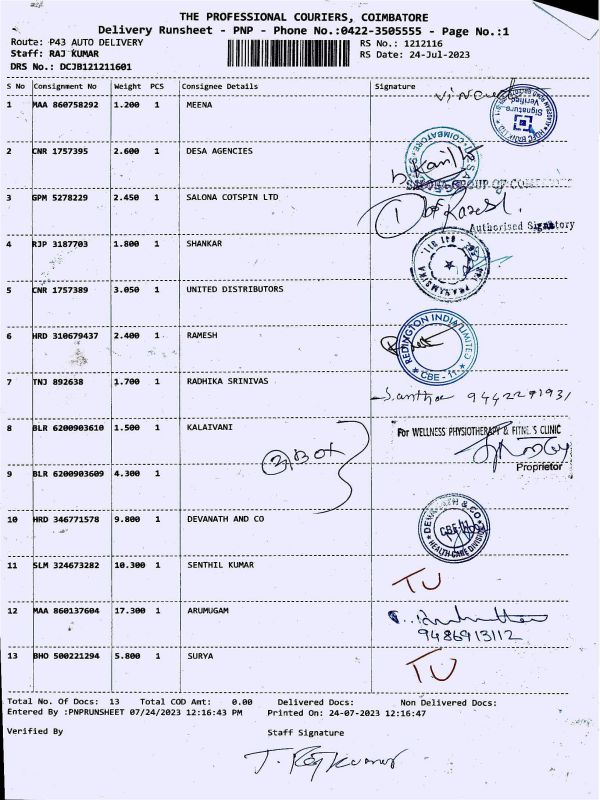 THE PROFESSIONAL COURIERS, COIMBATORE
Delivery Runsheet - PNP - Phone No.:0422-3505555 - Page No.:1
Route: P43 AUTO DELIVERY RS No.: 1212116
Staff: RAJ KUMAR RS Date: 24-Jul-2023
DRS No.: DCJB121211601
S No Consignment No Weight PCS Consignee Details Signature
1 MAA 860758292 1.200 1 MEENA
Signature Verified
2 CNR 1757395 2.600 1 DESA AGENCIES
COIMBATORE
3 GPM 5278229 2.450 1 SALONA COTSPIN LTD
Authorised Signatory
4 RJP 3187703 1.800 1 SHANKAR
5 CNR 1757389 3.050 1 UNITED DISTRIBUTORS
6 HRD 310679437 2.400 1 RAMESH
REDINGTON INDIA LIMITED
CBE - 11
7 TNJ 892638 1.700 1 RADHIKA SRINIVAS
Santha 9442291931
8 BLR 6200903610 1.500 1 KALAIVANI
For WELLNESS PHYSIOTHERAPY & FITNESS CLINIC
Proprietor
2 Box
9 BLR 6200903609 4.300 1
10 HRD 346771578 9.800 1 DEVANATH AND CO
DEVANATH & CO
HEALTH CARE DIVISION
11 SLM 324673282 10.300 1 SENTHIL KUMAR
TU
12 MAA 860137604 17.300 1 ARUMUGAM
9486913112
13 BHO 500221294 5.800 1 SURYA
TU
Total No. Of Docs: 13 Total COD Amt: 0.00 Delivered Docs: Non Delivered Docs:
Entered By :PNPRUNSHEET 07/24/2023 12:16:43 PM Printed On: 24-07-2023 12:16:47
Verified By Staff Signature
T. Rajkumar